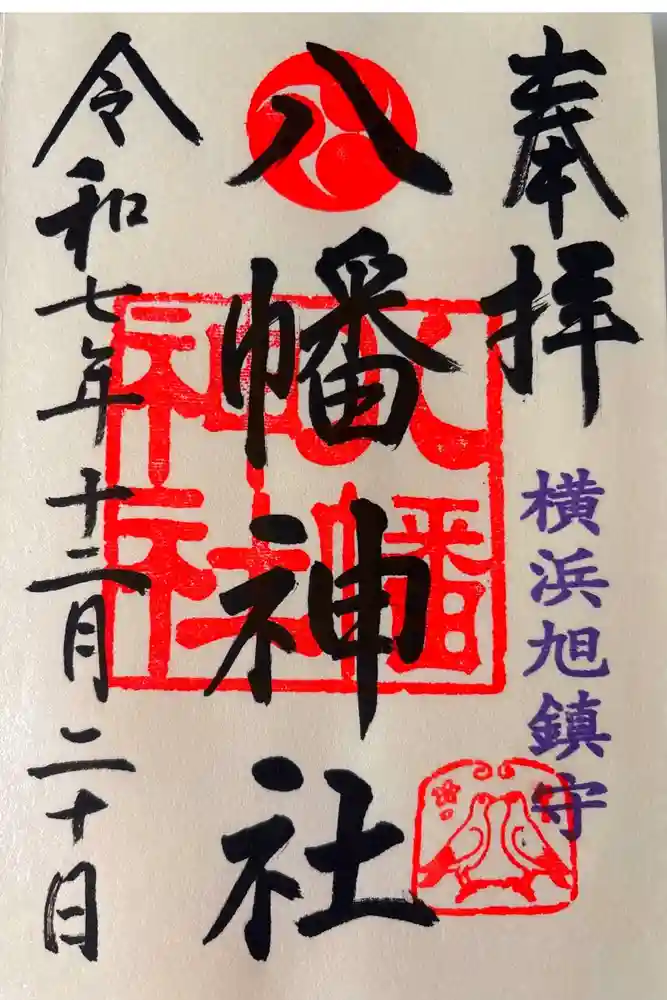 奉拝
横浜旭鎮守
八幡神社
八幡
神社
令和七年十二月二十日